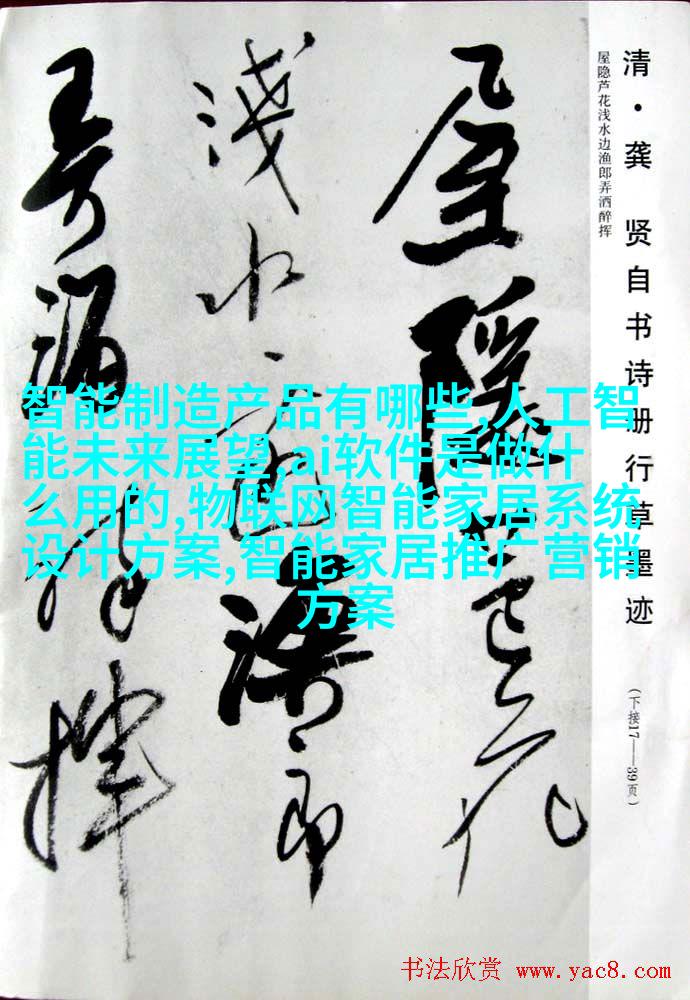 清·龚 贤自书诗册行草墨迹
(下接17——39页)
屋隐芦花浅水边渔郎弄洒醉挥
屋隱蘆花
淺水邊漁郎
弄酒醉揮
智能制造产品有哪些,人工智
能未来展望,ai软件是做什
么用的,物联网智能家居系统
设计方案,智能家居推广营销
方案
书法欣赏 www.yac8.com